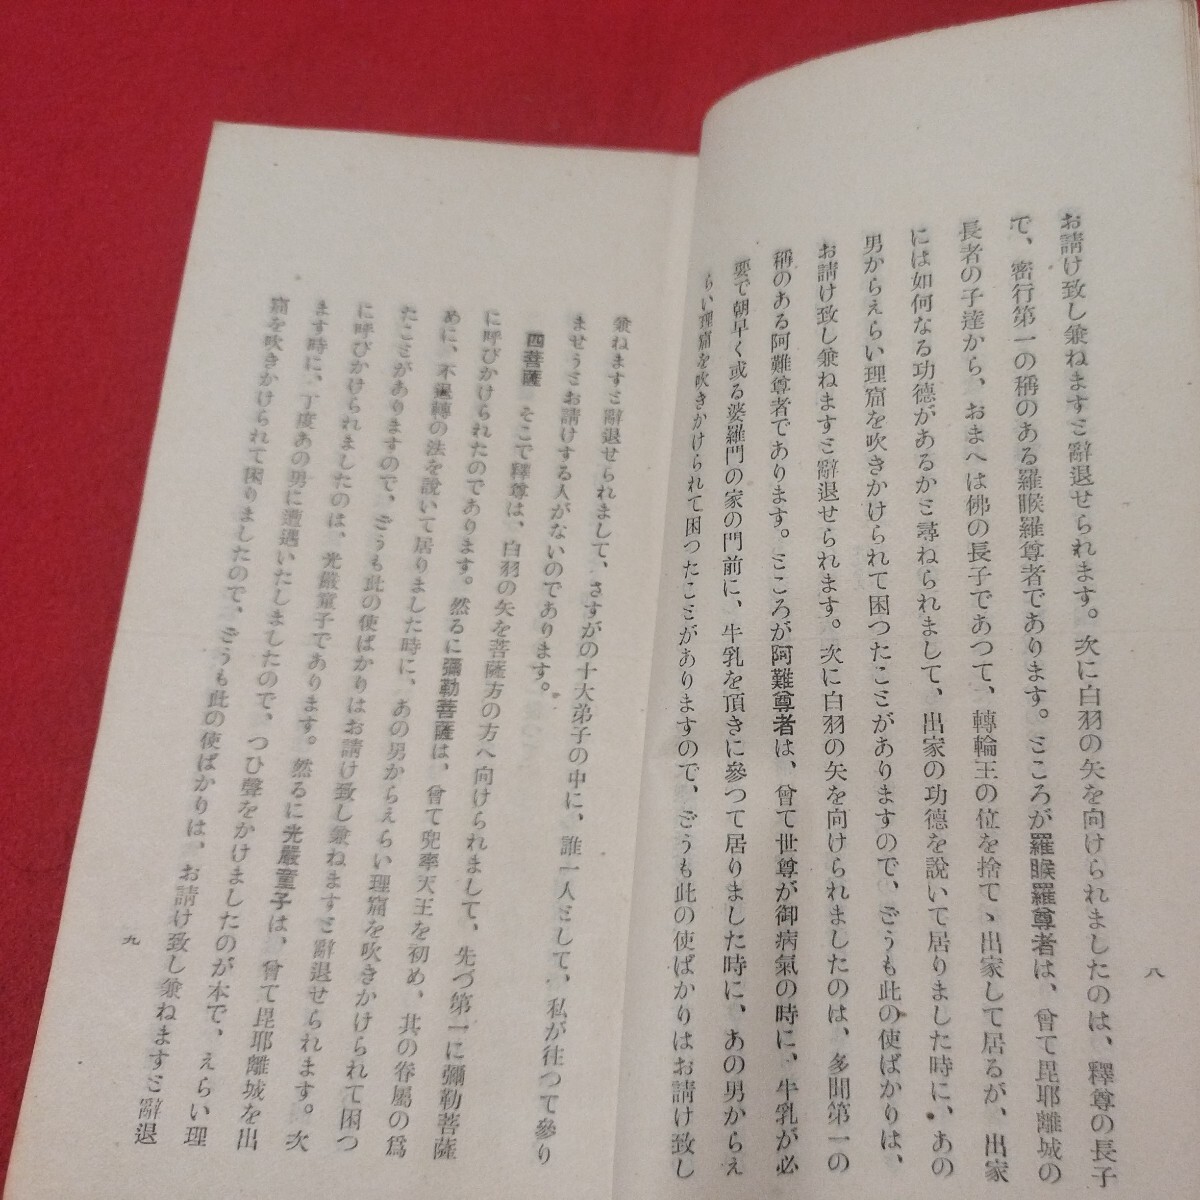 お請け致し兼ねますと辭退せられます。次に白羽の矢を向けられましたのは、釋尊の長子
で、密行第一の稱のある羅睺羅尊者であります。ところが羅睺羅尊者は、曾て毘耶離城の
長者の子達から、おまへは佛の長子であつて、轉輪王の位を捨てゝ出家して居るが、出家
には如何なる功德があるかと尋ねられまして、出家の功德を說いて居りました時に、あの
男からえらい理窟を吹きかけられて困つたことがありますので、どうも此の使ばかりは、
お請け致し兼ねますと辭退せられます。次に白羽の矢を向けられましたのは、多聞第一の
稱のある阿難尊者であります。ところが阿難尊者は、曾て世尊が御病氣の時に、牛乳が必
要で朝早く或る婆羅門の家の門前に、牛乳を頂きに參つて居りました時に、あの男からえ
らい理窟を吹きかけられて困つたことがありますので、どうも此の使ばかりはお請け致し
八
兼ねますと辭退せられまして、さすがの十大弟子の中に、誰一人として、私が往つて參り
ませうとお請けする人がないのであります。
四菩薩 そこで釋尊は、白羽の矢を菩薩方の方へ向けられまして、先づ第一に彌勒菩薩
に呼びかけられたのであります。然るに彌勒菩薩は、曾て兜率天王を初め、其の眷屬の爲
めに、不退轉の法を說いて居りました時に、あの男からえらい理窟を吹きかけられて困つ
たことがありますので、どうも此の使ばかりはお請け致し兼ねますと辭退せられます。次
に呼びかけられましたのは、光嚴童子であります。然るに光嚴童子は、曾て毘耶離城を出
ます時に、丁度あの男に遭遇いたしましたので、つひ聲をかけましたのが本で、えらい理
窟を吹きかけられて困りましたので、どうも此の使ばかりは、お請け致し兼ねますと辭退
九